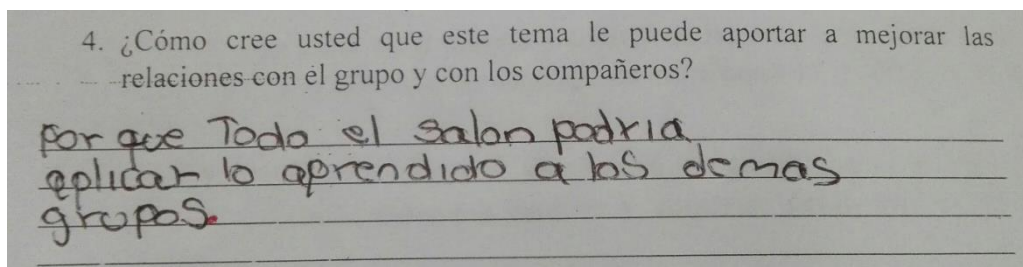 4. ¿Cómo cree usted que este tema le puede aportar a mejorar las
relaciones con el grupo y con los compañeros?
por que Todo el salon podria
aplicar lo aprendido a los demas
grupos.